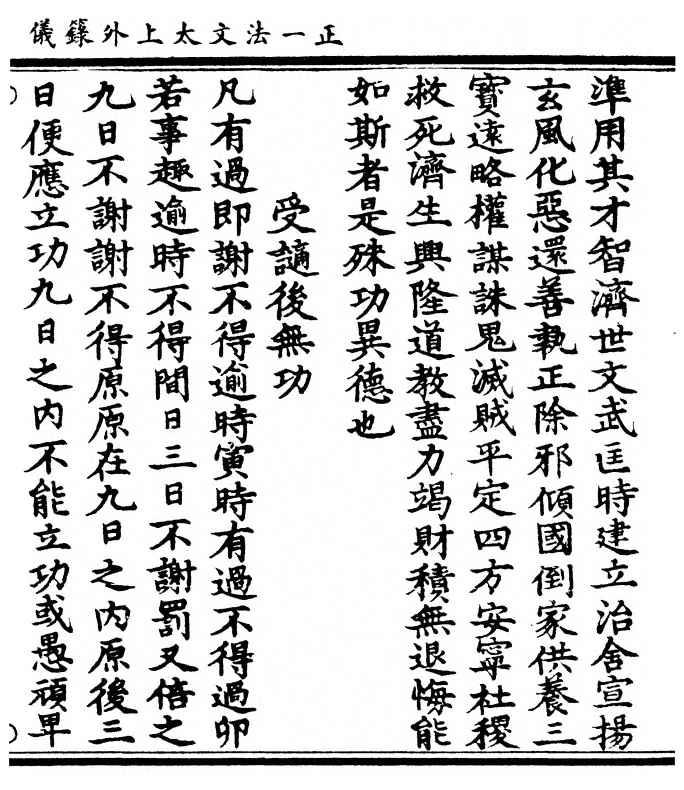 正一法文太上外籙儀
準用其才智濟世文武匡時建立治舍宣揚
玄風化惡還善執正除邪傾國倒家供養三
寶遠略權謀誅鬼滅賊平定四方安寧社稷
救死濟生興隆道教盡力竭財積無退悔能
如斯者是殊功異德也
受讁後無功
凡有過即謝不得逾時寅時有過不得過卯
若事趣逾時不得間日三日不謝罰又倍之
九日不謝謝不得原原在九日之內原後三
日便應立功九日之內不能立功或愚頑早